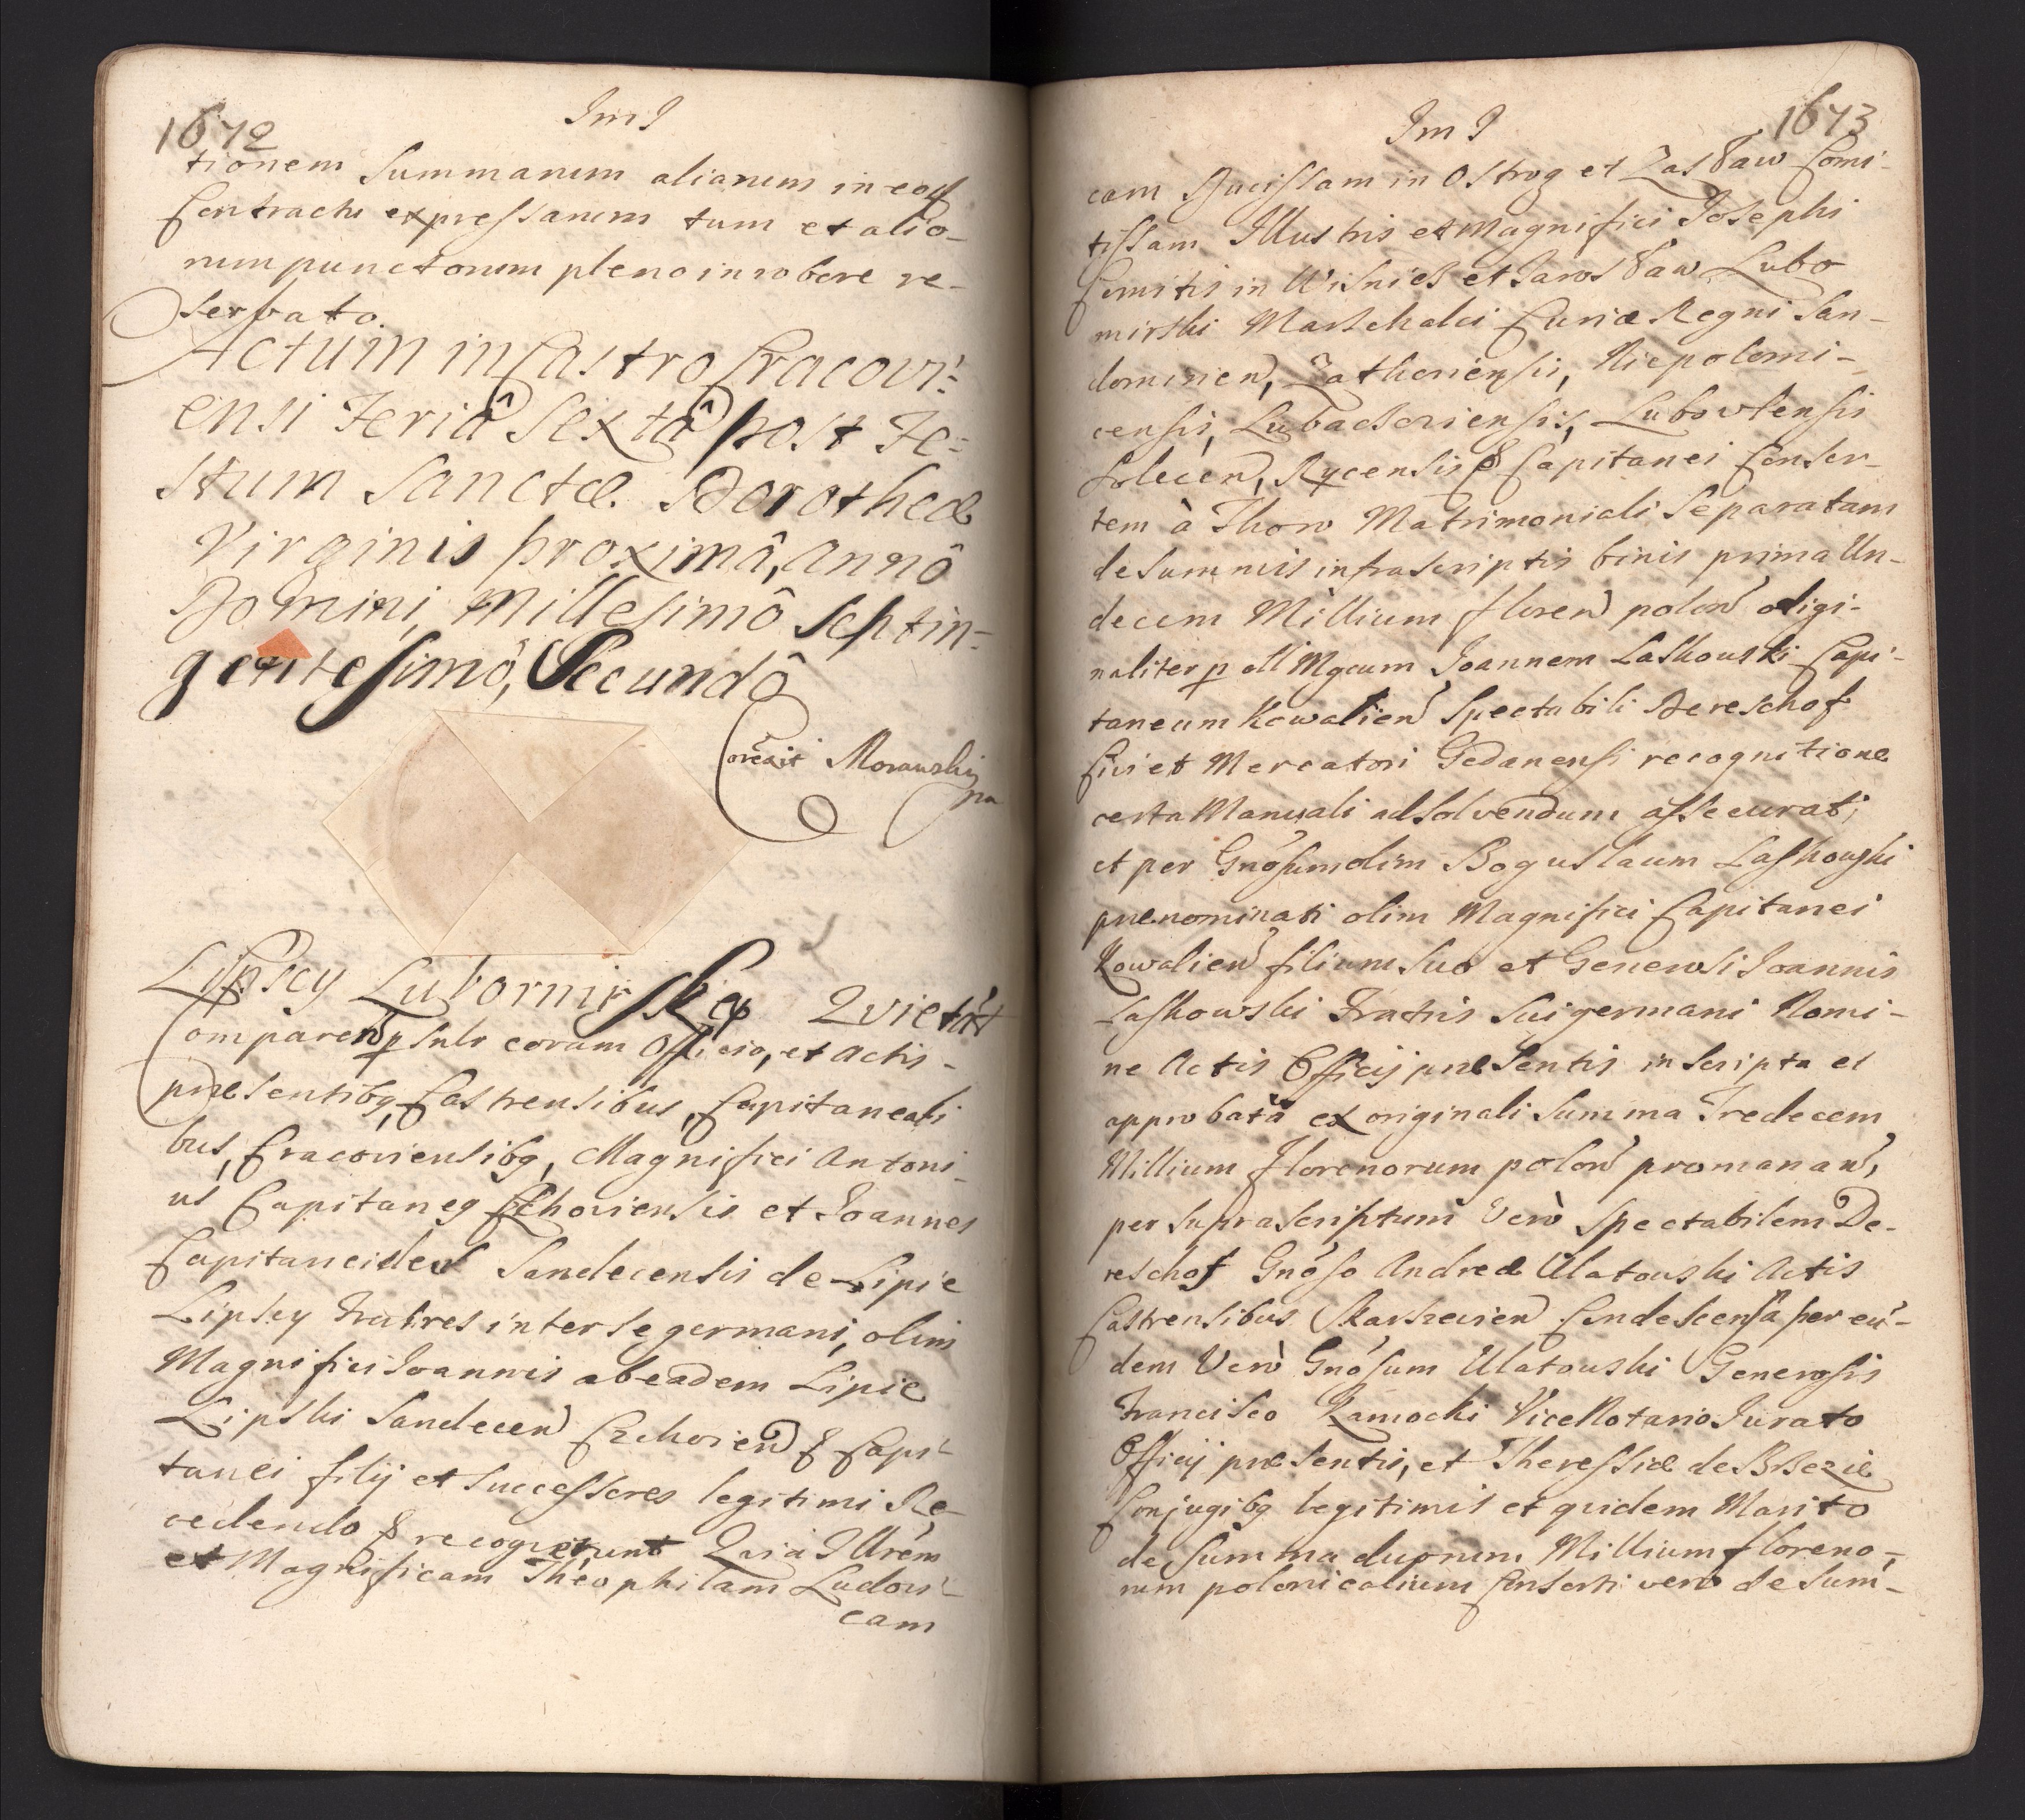 1672
ImJ
tionem Summarum aliarum in eod
Contractu expressarum tum et alio-
rum punctorum pleno in robore re-
servato.
Actum in Castro Cracovi=
ensi Feriâ Sextâ post Fe=
stum Sanctæ Dorotheæ
Virginis proximâ, Annô
Domini Millesimô Septin-
gentesimô, Secundô
Correxit Morawski
mp
Lipscy Lubomirską Quietat
Comparen p sulr coram Officio, et Actis
præsentibq Castrensibus, Capitaneali
bus, Cracoviensibq, Magnifici Antoni-
us Capitaneq Czchoviensis et Joannes
Capitaneides Sandecensis de Lipie
Lipscy Fratres inter se germani, olim
Magnifici Joannis ab eadem Lipie
Lipski Sandecen Czchovien & Capi-
tanei filij et Successores legitimi Re-
cedendo & recogverunt Quia Illrem
et Magnificam Theophilam Ludovi-
cam
1673
Im J
cam Ducissam in Ostrog et Zasław Comi-
tissam Illustris et Magnifici Josephi
Comitis in Wisnicz et Jarosław Lubo
mirski Marschalci Curiæ Regni San-
domirien, Zathoriensis, Niepolomi-
censis, Lubaczoviensis, Lubovlensis
Solecen, Rycensis & Capitanei Consor-
tem à Thoro Matrimoniali Separatam
de Summis infrascriptis binis prima Un-
decem Millium floren polon origi-
naliter p oll Mgcum Joannem Laskowski Capi-
taneum Kowalien Spectabili Dereschof
Civi et Mercatori Gedanensi recognitione
certa Manuali ad Solvendum assecurati,
et per Gnosum olim Boguslaum Laskowski
prænominati olim Magnifici Capitanei
Kowalien filium Suo et Generosi Joannis
Laskowski Fratris Sui germani Nomi-
ne Actis Officij præsentis inscripta et
approbata ex originali Summa Tredecem
Millium Florenorum polon promanan,
per Suprascriptum Verò Spectabilem De-
reschof Gnoso Andreæ Ulatowski Actis
Castrensibus Skarszevien Condescensa per eun-
dem Verò Gnosum Ulatowski Generosis
Francisco Zamocki ViceNotario Jurato
Officij præsentis, et Theressiæ de Brzezie
Conjugibq legitimis et quidem Marito
de Summa duorum Millium floreno-
rum polonicalium Consorti vero de Sum-